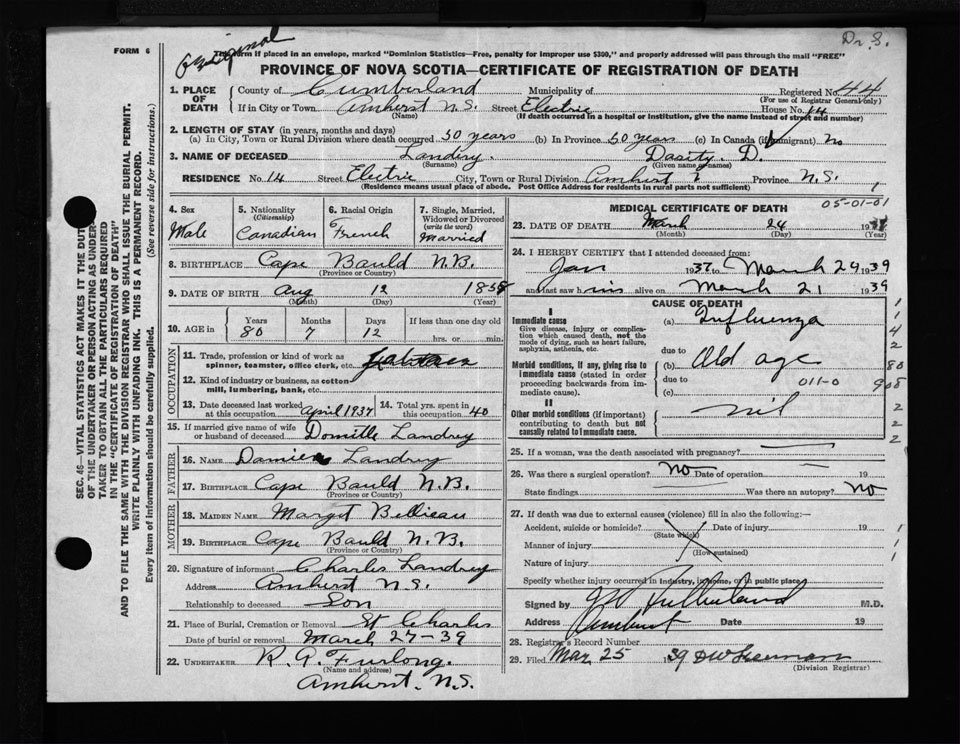 Dr. S.
Original
FORM 6
This form if placed in an envelope, marked "Dominion Statistics—Free, penalty for improper use $300," and properly addressed will pass through the mail "FREE"
PROVINCE OF NOVA SCOTIA—CERTIFICATE OF REGISTRATION OF DEATH
SEC. 46—VITAL STATISTICS ACT MAKES IT THE DUTY
OF THE UNDERTAKER OR PERSON ACTING AS UNDER-
TAKER TO OBTAIN ALL THE PARTICULARS REQUIRED
IN THE "CERTIFICATE OF REGISTRATION OF DEATH"
AND TO FILE THE SAME WITH THE DIVISION REGISTRAR WHO SHALL ISSUE THE BURIAL PERMIT.
WRITE PLAINLY WITH UNFADING INK. THIS IS A PERMANENT RECORD.
Every item of information should be carefully supplied. (See reverse side for instructions.)
1. PLACE OF DEATH
County of Cumberland Municipality of Registered No. 44
(For use of Registrar General only)
If in City or Town Amherst N.S. Street Electric House No. 14
(Name) (If death occurred in a hospital or institution, give the name instead of street and number)
2. LENGTH OF STAY (in years, months and days)
(a) In City, Town or Rural Division where death occurred 50 years (b) In Province 50 years (c) In Canada (if immigrant) no
3. NAME OF DECEASED Landry. D.
(Surname) (Given name or names)
RESIDENCE No. 14 Street Electric City, Town or Rural Division Amherst Province N.S.
(Residence means usual place of abode. Post Office Address for residents in rural parts not sufficient) 1
4. Sex Male
5. Nationality (Citizenship) Canadian
6. Racial Origin French
7. Single, Married, Widowed or Divorced (write the word) Married
8. BIRTHPLACE Cape Bauld N.B.
(Province or Country)
9. DATE OF BIRTH Aug 12 1858
(Month) (Day) (Year)
10. AGE in Years 80 Months 7 Days 12 If less than one day hrs. or min.
OCCUPATION
11. Trade, profession or kind of work as spinner, teamster, office clerk, etc.
12. Kind of industry or business, as cotton mill, lumbering, bank, etc.
13. Date deceased last worked at this occupation April 1937
14. Total yrs. spent in this occupation 40
15. If married give name of wife or husband of deceased Landrey
FATHER
16. NAME Landry
17. BIRTHPLACE Cape Bauld N.B.
(Province or Country)
MOTHER
18. MAIDEN NAME Margit
19. BIRTHPLACE Cape Bauld N.B.
(Province or Country)
20. Signature of informant Charles Landrey
Address Amherst N.S.
Relationship to deceased Son
21. Place of Burial, Cremation or Removal St Charles
Date of burial or removal March 27-39
22. UNDERTAKER R. A. Furlong.
(Name and address)
Amherst. N.S.
05-01-01
MEDICAL CERTIFICATE OF DEATH
23. DATE OF DEATH March 24 19
(Month) (Day) (Year)
24. I HEREBY CERTIFY that I attended deceased from:
Jan 1937 to March 24 1939
and last saw him alive on March 21 1939
CAUSE OF DEATH
I
Immediate cause (a) Influenza
Give disease, injury or complication which caused death, not the mode of dying, such as heart failure, asphyxia, asthenia, etc.
due to
Morbid conditions, if any, giving rise to immediate cause (stated in order proceeding backwards from immediate cause). (b) Old age
due to 011-0
(c)
II
Other morbid conditions (if important) contributing to death but not causally related to immediate cause. nil
1
1
4
2
80
908
2
2
2
25. If a woman, was the death associated with pregnancy?
26. Was there a surgical operation? No Date of operation 19
State findings Was there an autopsy? No
27. If death was due to external causes (violence) fill in also the following:—
Accident, suicide or homicide? Date of injury 19
(State which)
Manner of injury
(How sustained)
Nature of injury
1
1
1
Specify whether injury occurred in industry, in home, or in public place
Signed by M.D.
Address Amherst Date 19
28. Registrar's Record Number
29. Filed Mar 25 1939
(Division Registrar)